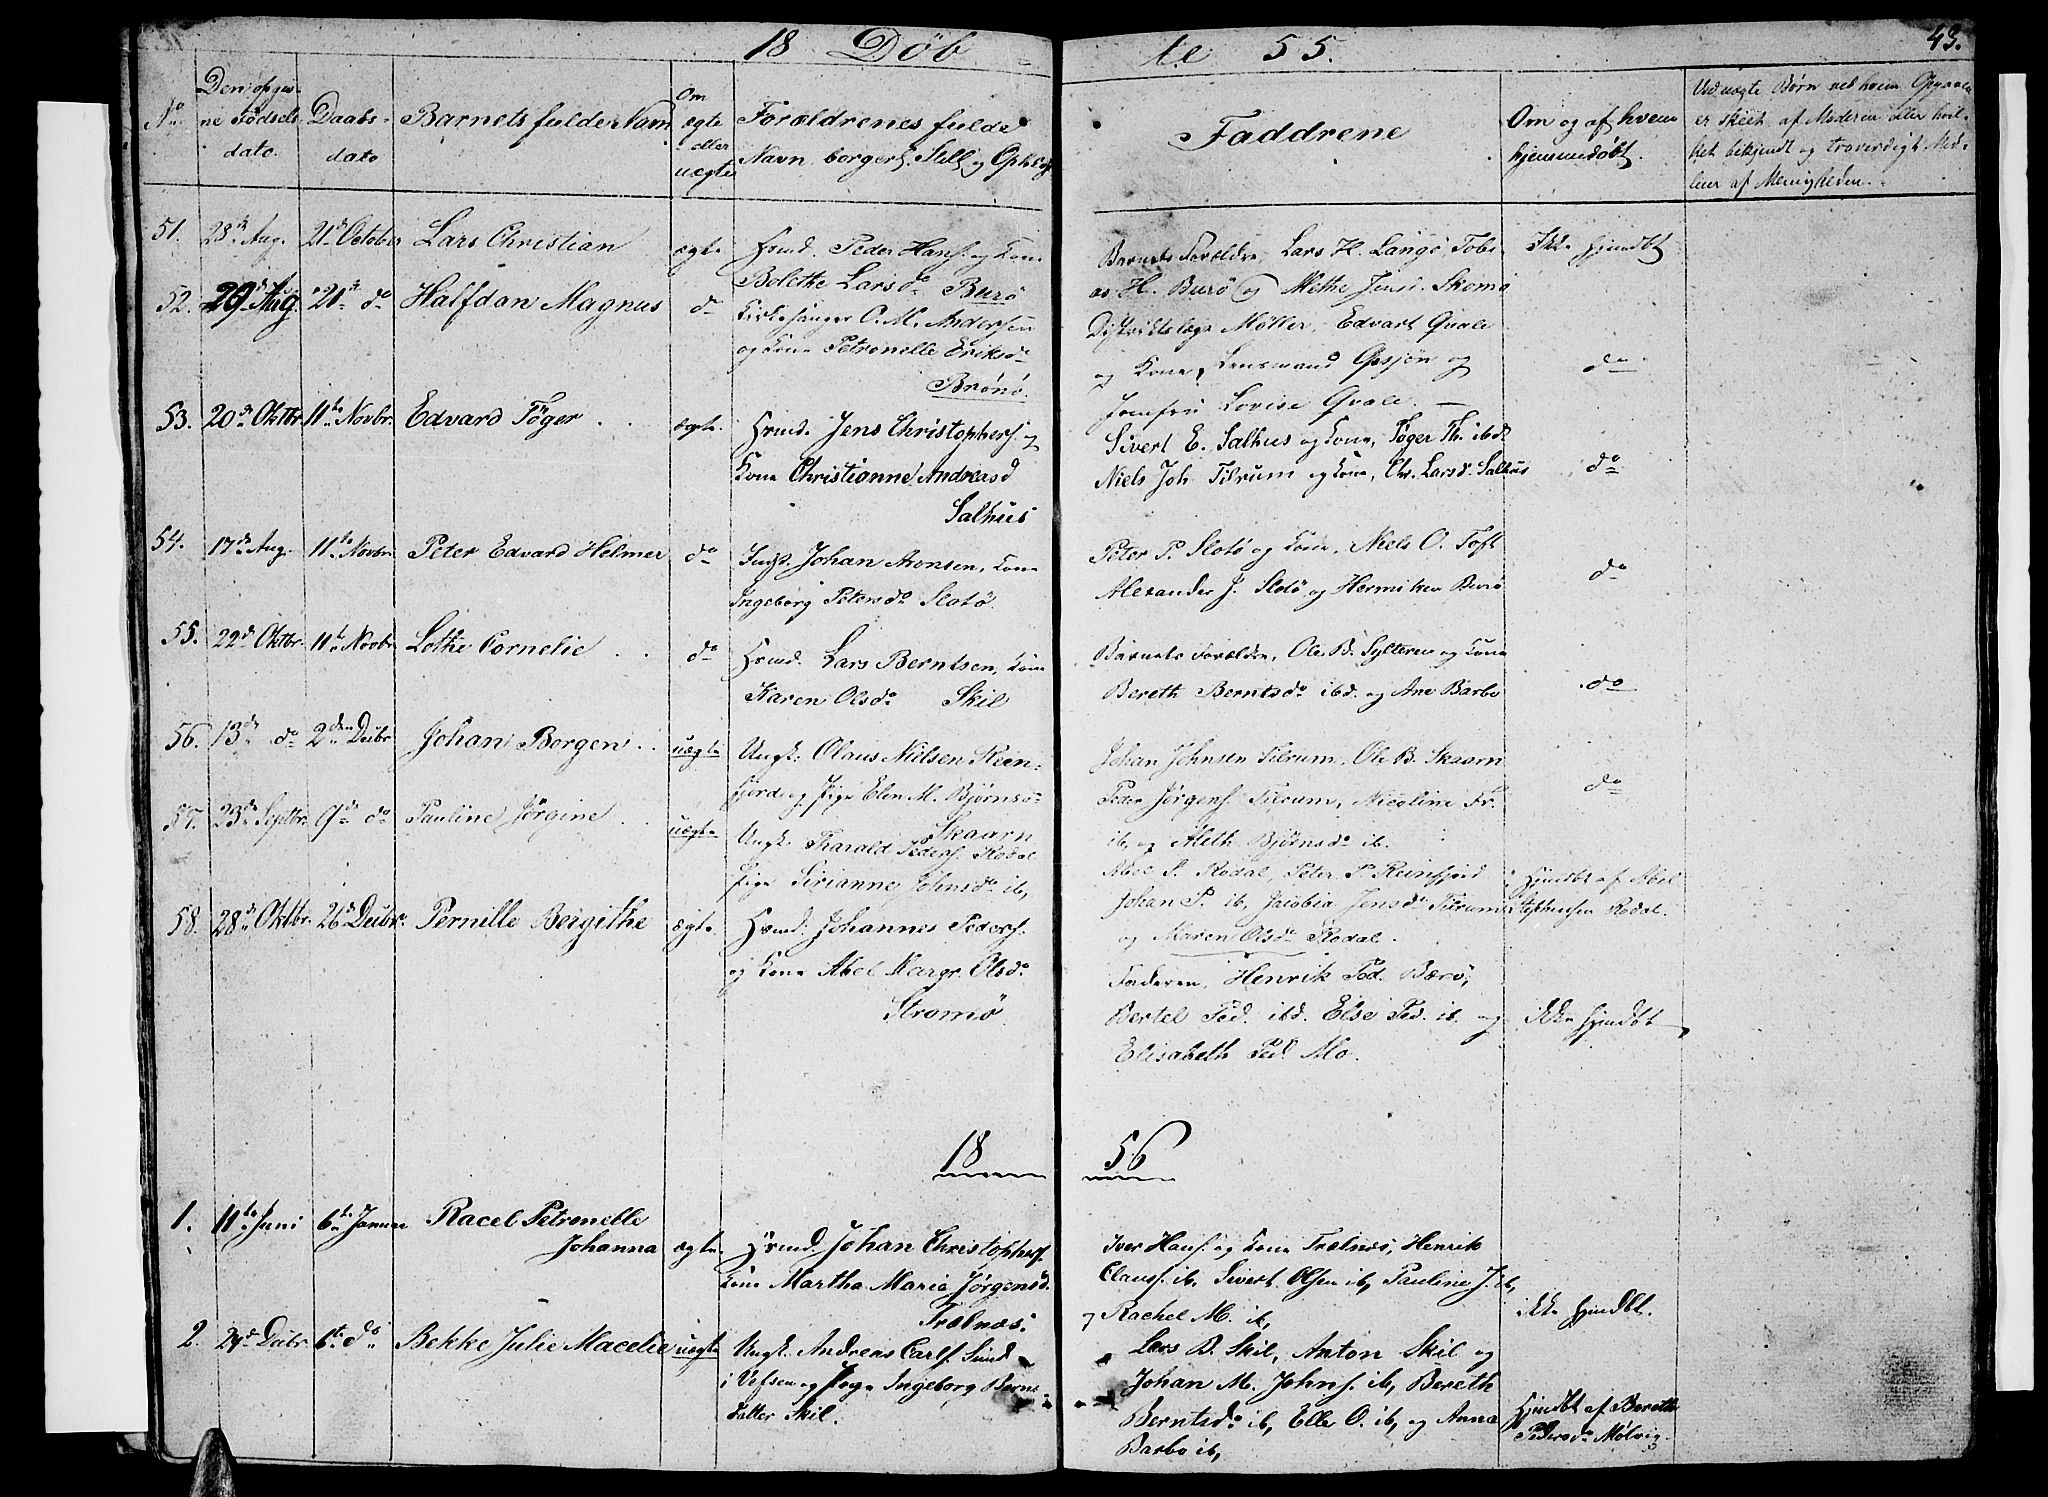 18 Døb te 55.
43.
No.
Den opgiv-
ne Fødsels
dato.
Daabs-
dato
Barnets fulde Navn
Om
ægte
eller
uægte
Forældrenes fulde
Navn, borgerl. Still. og Opholdst.
Faddrene
Om og af hvem
hjemmedøbt.
Ved uægte Børn ved hvem Opgaven
er skeet af Moderen eller hvil-
ket bekjendt og troværdigt Med-
lem af Menigheden.
51. 28de Aug. 21de October Lars Christian ægte
Hsmd. Peder Hans. og Kone
Bolethe Larsdr. Burø
Barnets Forældre, Lars H. Langø, Tobi-
as H. Burø og Methe Jens. Skomo
Ikke hjemdbt
52. 29de Aug. 21de do Halfdan Magnus do
Kirkesanger O. M. Andersen
og Kone Petronelle Eriksdr.
Brønø.
Distriktslæge Møller, Edvart Qvale
og Kone, Lensmand Opsjøn og
Jomfru Lovise Qvale.
do
53. 20de Oktbr. 11te Novbr. Edvard Tøger ægte.
Hsmd. Jens Christophers. og
Kone Christianne Andreasd
Salhus
Sivert E. Salhus og Kone, Tøger Th. ibd.
Niels Joh. Tilrum og Kone, Chr. Larsd. Salhus
do
54. 17de Aug. 11te Novbr. Peter Edvard Helmer do
Johan Monsen, Kone
Ingeborg Petersdr. Slotø.
Peter P. Slotø og Kone, Niels O. Toft
Alexander J. Slotø og Hermiken Burø
do
55. 22de Oktbr. 11te Novbr. Lothe Cornelie do
Hsmd. Lars Berntsen, Kone
Karen Olsdr. Skil
Barnets Forældre, Ole B. Sylteren og Kone
Bereth Berntsdr. ibd. og Ane Barbo
do
56. 13de do 2den Decbr. Johan Borgen uægte
Ungk: Olaus Nielsen Rein-
fjord og Pige Elen M. Bjørnsdr.
Skaarn
Johan Johnsen Tilrum, Ole B. Skaarn
Peder Jørgens. Tilrum, Nicoline Fr.
ib, og Aleth Bjørnsdr. ib.
do
57. 23de Septbr. 9de do Pauline Jørgine uægte
Ungk. Harald Peders. Rodal
Pige Sirianne Johnsdr. ib,
Abel S. Rodal, Peter P. Reinfjord
Johan P. ib, Jacobia Jensdr. Tilrum
og Maren Olsdr. Rodal.
Hjemdbt af Abel
Stephensen Rodal.
58. 28de Oktbr. 26de Decbr. Pernille Beigithe ægte.
Hsmd. Johannes Peders.
og Kone Abel Margr. Olsdr.
Stromø
Faderen, Henrik Ped. Bærø,
Bertel Ped. ibd. Else Ped. ib. og
Elisabeth Ped. Mo.
ikke hjemdbt
18 56
1. 11te Juni 6te Januar Racel Petronelle
Johanna ægte
Hsmd. Johan Christophers.
Kone Martha Marie Jørgensd.
Trælnæs.
Iver Hans. og Kone Trælnæs, Henrik
Claus. ib, Sivert Olsen ib, Pauline J. ib,
og Rachel M. ib,
ikke hjemdbt.
2. 29de Decbr. 6te do Bekke Julie Macelie uægte
Ungk. Andreas Carls. Sund
i Vefsen og Pige Ingeborg Bernts
datter Skil.
Lars B. Skil, Anton Skil og
Johan M. Johns. ib, Bereth
Berntsdr. ib, Elle O. ib, og Anna
Barbo ib,
Hjemdbt af Bereth
Pedersdr. Mølvig.